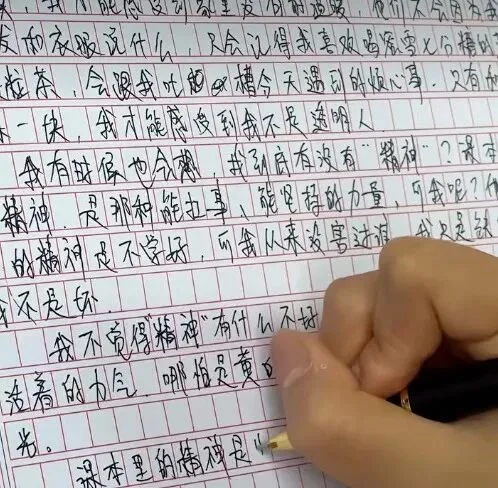 才能感受到
的衣服说什么，只会记得我喜欢喝冰雪七分糖的
茶，会跟我吐槽今天遇到的烦心事。只有
一块，我才能感受到我不是透明人
我有时候也会想，我到底有没有“精神”？课本
精神，是那种能扛事、能坚持的力量，可我呢？
的精神是不学好，可我从来没害过谁，我只是
我不是坏
我不觉得“精神”有什么不好
活着的力气，哪怕是黄
光。
课本里的精神是“